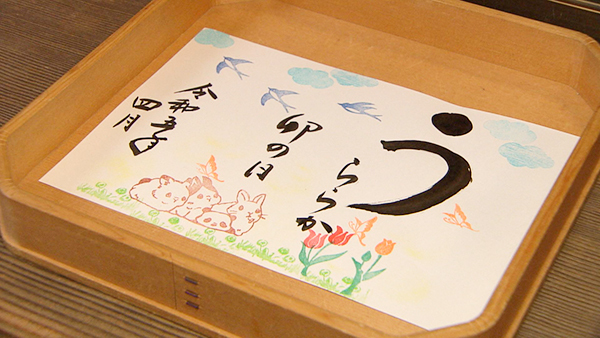 うららか
卯の日
令和五年
四月